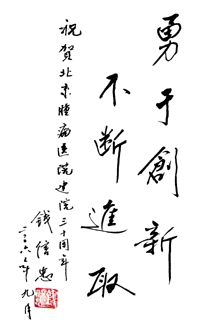 勇于創新
不断進取
祝賀北京腫瘤医院建院三十周年
錢信忠
二〇〇六年九月